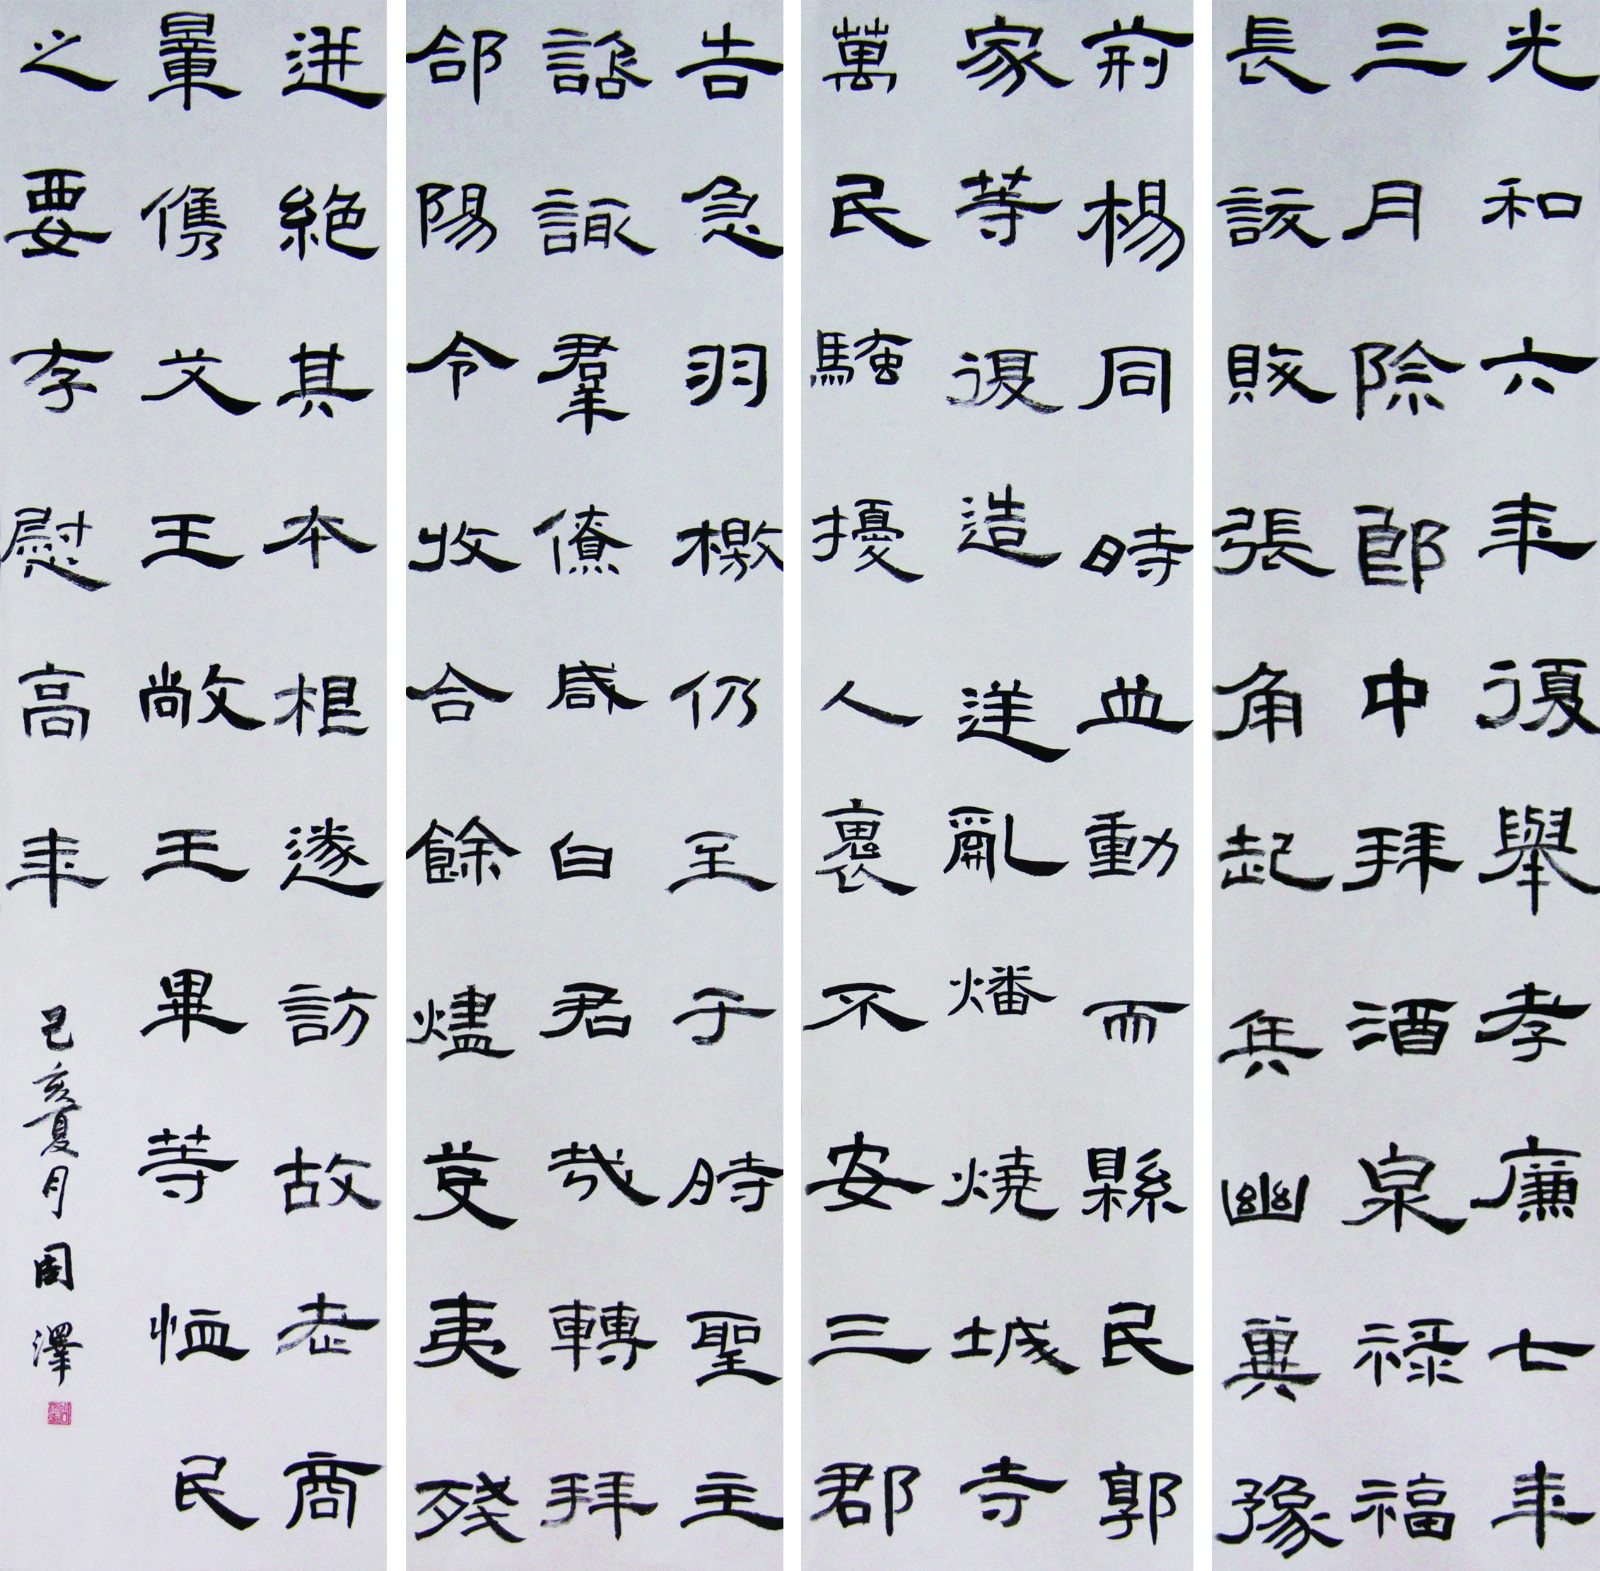 光和六年復舉孝廉七年
三月除郎中拜酒泉祿福
長訞賊張角起兵幽冀豫
荊楊同時並動而縣民郭
家等復造逆亂燔燒城寺
萬民騷擾人裹不安三郡
告急羽檄仍至于時聖主
諮諏羣僚咸曰君哉轉拜
郃陽令收合餘燼芟夷殘
迸絕其本根遂訪故老商
量儁艾王敞王畢等恤民
之要存慰高年
己亥夏月周澤